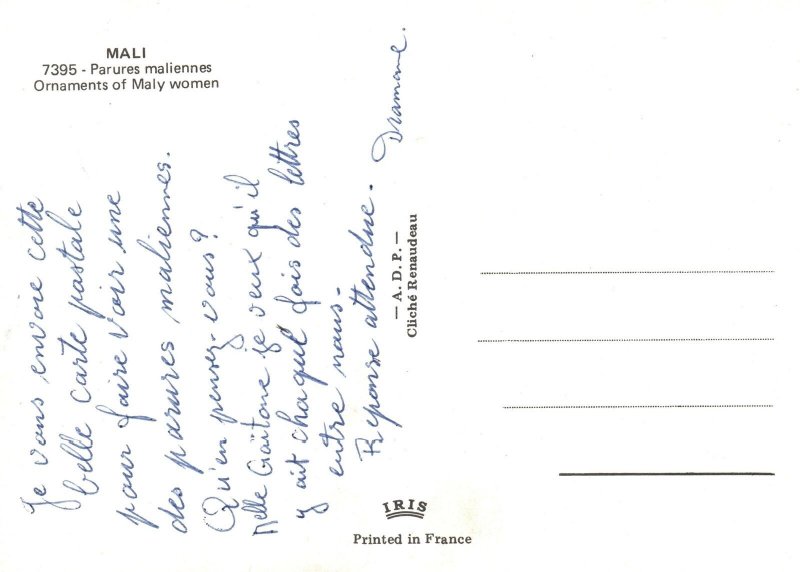 MALI
7395 - Parures maliennes
Ornaments of Maly women
Je vous envoie cette
belle carte pastale
pour faire voir une
des parures maliennes.
Qu'en pensez-vous?
Melle Gaïtane je veux qu'il
y ait chaque fois des lettres
entre nous.
Reponse attendue. Dramane.
— A. D. P. —
Cliché Renaudeau
IRIS
Printed in France